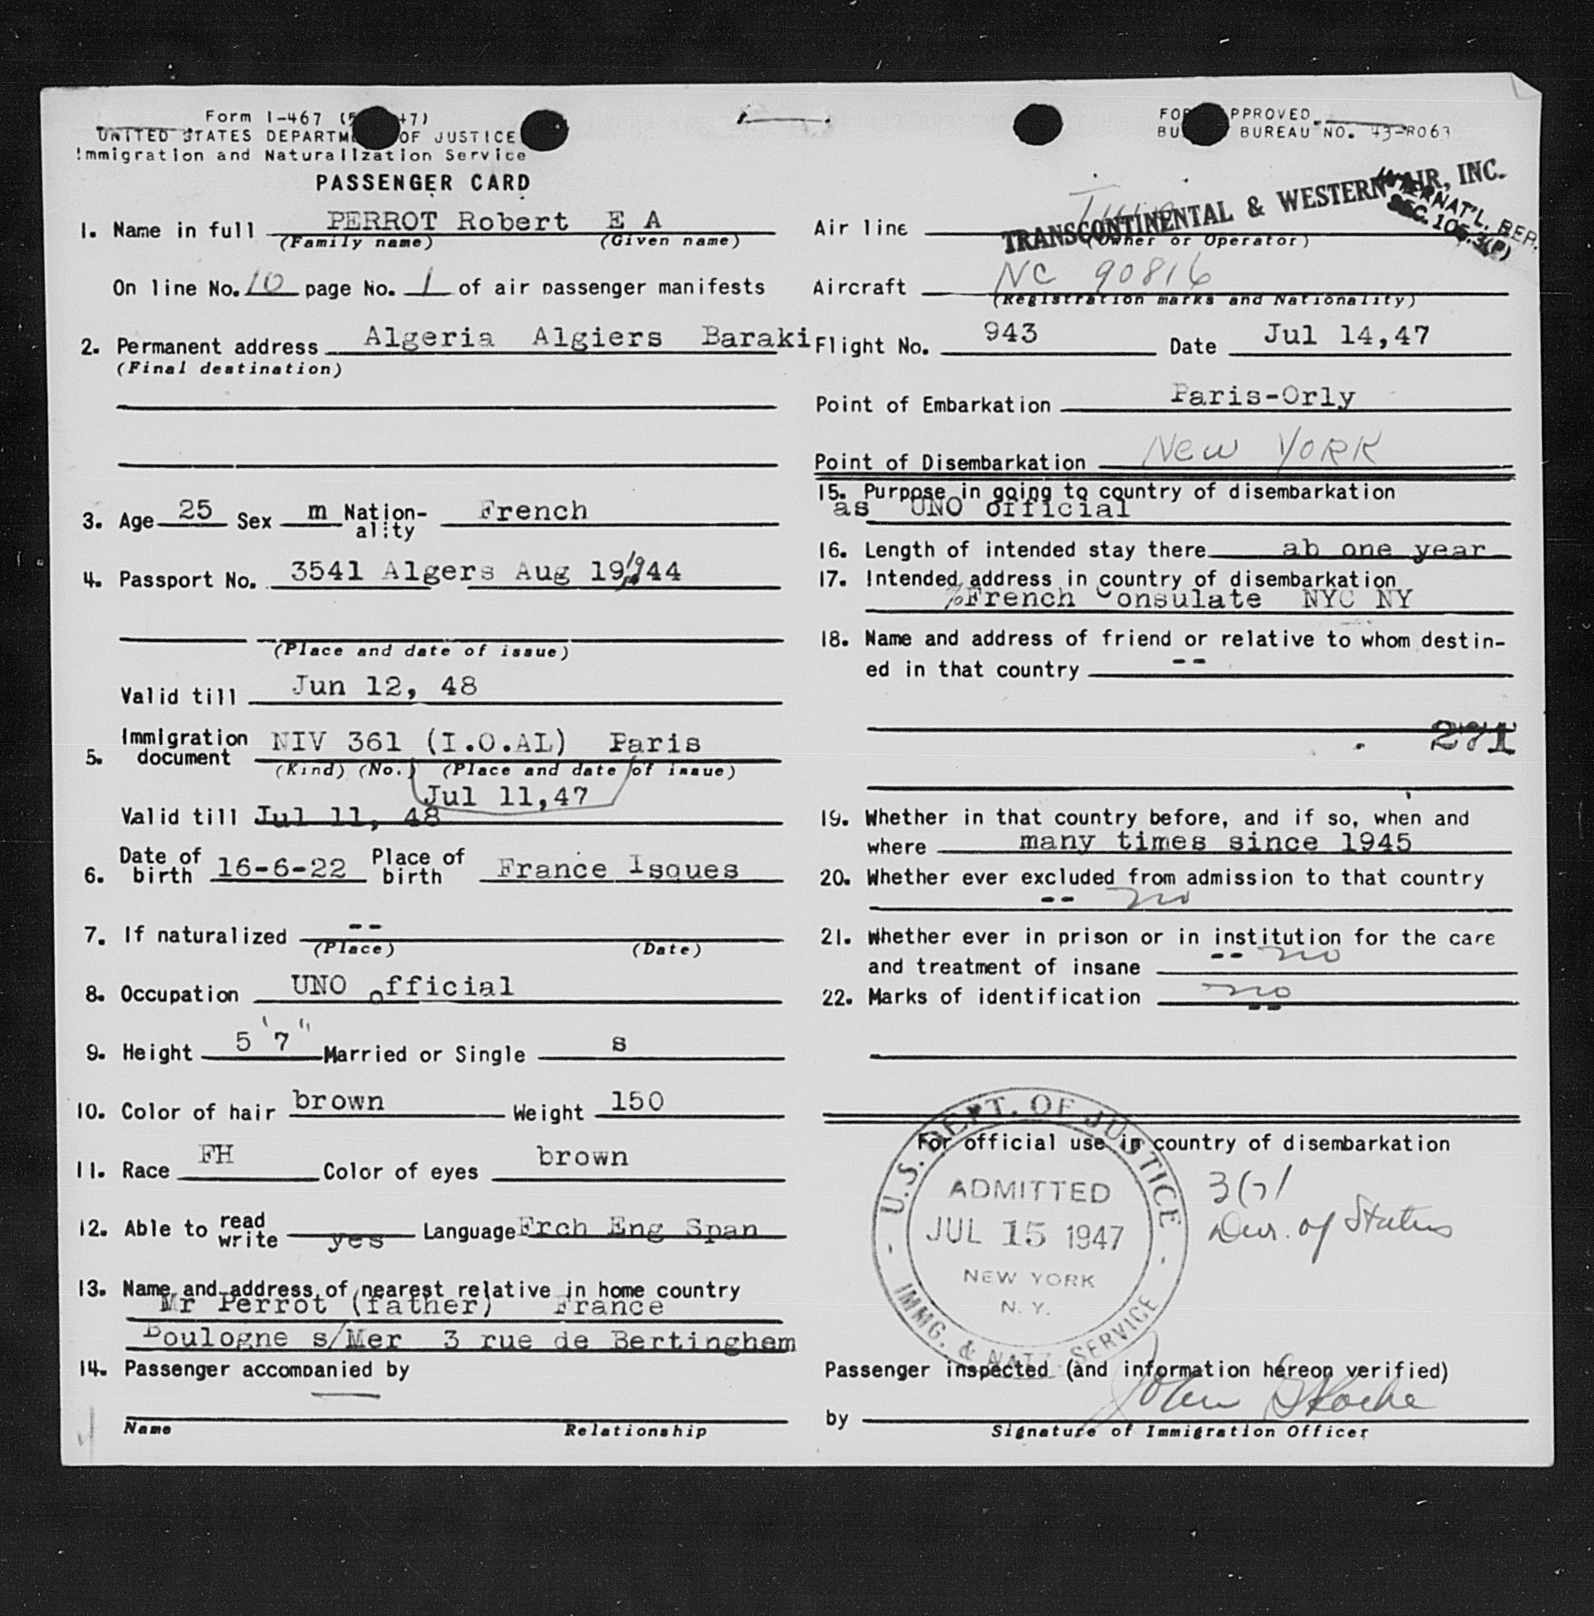 Form I-467 (5 47)
UNITED STATES DEPARTMENT OF JUSTICE
Immigration and Naturalization Service
PASSENGER CARD
FORM APPROVED.
BUREAU NO. 43-R063
1. Name in full PERROT Robert E A
(Family name) (Given name)
On line No. 10 page No. 1 of air passenger manifests
2. Permanent address Algeria Algiers Baraki
(Final destination)
3. Age 25 Sex m Nationality French
4. Passport No. 3541 Algers Aug 19, 1944
(Place and date of issue)
Valid till Jun 12, 48
5. Immigration document NIV 361 (I.O.AL) Paris
(Kind) (No.) (Place and date of issue)
Jul 11,47
Valid till Jul 11, 48
6. Date of birth 16-6-22 Place of birth France Isques
7. If naturalized --
(Place) (Date)
8. Occupation UNO official
9. Height 5' 7" Married or Single s
10. Color of hair brown Weight 150
11. Race FH Color of eyes brown
12. Able to read write yes Language Frch Eng Span
13. Name and address of nearest relative in home country
Mr Perrot (father) France
Boulogne s/Mer 3 rue de Bertinghem
14. Passenger accompanied by
Name Relationship
Air line TRANSCONTINENTAL & WESTERN AIR, INC.
(Owner or Operator)
INTERNAT'L. BER.
SEC. 105.3(P)
Aircraft NC 90816
(Registration marks and Nationality)
Flight No. 943 Date Jul 14,47
Point of Embarkation Paris-Orly
Point of Disembarkation New York
15. Purpose in going to country of disembarkation
as UNO official
16. Length of intended stay there ab one year
17. Intended address in country of disembarkation
%French Consulate NYC NY
18. Name and address of friend or relative to whom destin-
ed in that country --
271
19. Whether in that country before, and if so, when and
where many times since 1945
20. Whether ever excluded from admission to that country
-- no
21. Whether ever in prison or in institution for the care
and treatment of insane -- no
22. Marks of identification no
--
For official use in country of disembarkation
U.S. DEPT. OF JUSTICE
ADMITTED
JUL 15 1947
NEW YORK
N. Y.
IMMG. & NATZ. SERVICE
3(7)
Dur. of Status
Passenger inspected (and information hereon verified)
by John
Signature of Immigration Officer